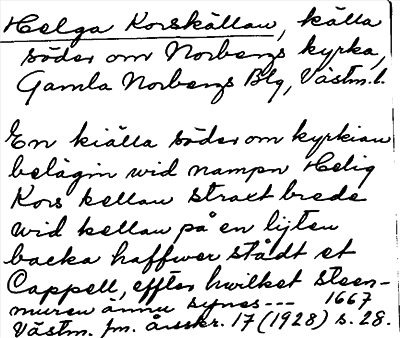 Helga Korskällan, källa
söder om Norbergs kyrka,
Gamla Norbergs Blg, Västm. l.
En kiälla söder om kyrkian
belägin wid nampn Helig
Kors kellan straxt brede
wid kellan på en lijten
backa haffwer stådt et
Cappell, effter hwilket steen-
muren ännu synes--- 1667
Västm. fm. årsskr. 17 (1928) s. 28.